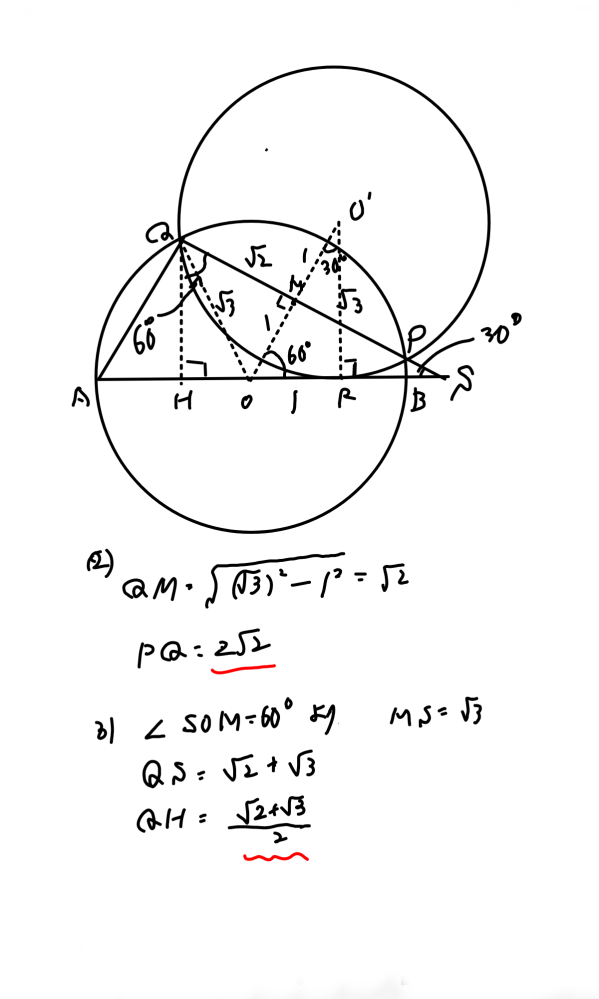 O'
Q
√2
1
30°
M
√3
√3
1
60°
60°
P
30°
A
H
O
1
R
B
S
(2)
QM = √(√3)² − 1² = √2
PQ = 2√2
3) ∠SOM=60° より MS = √3
QS = √2 + √3
QH = (√2+√3)/2